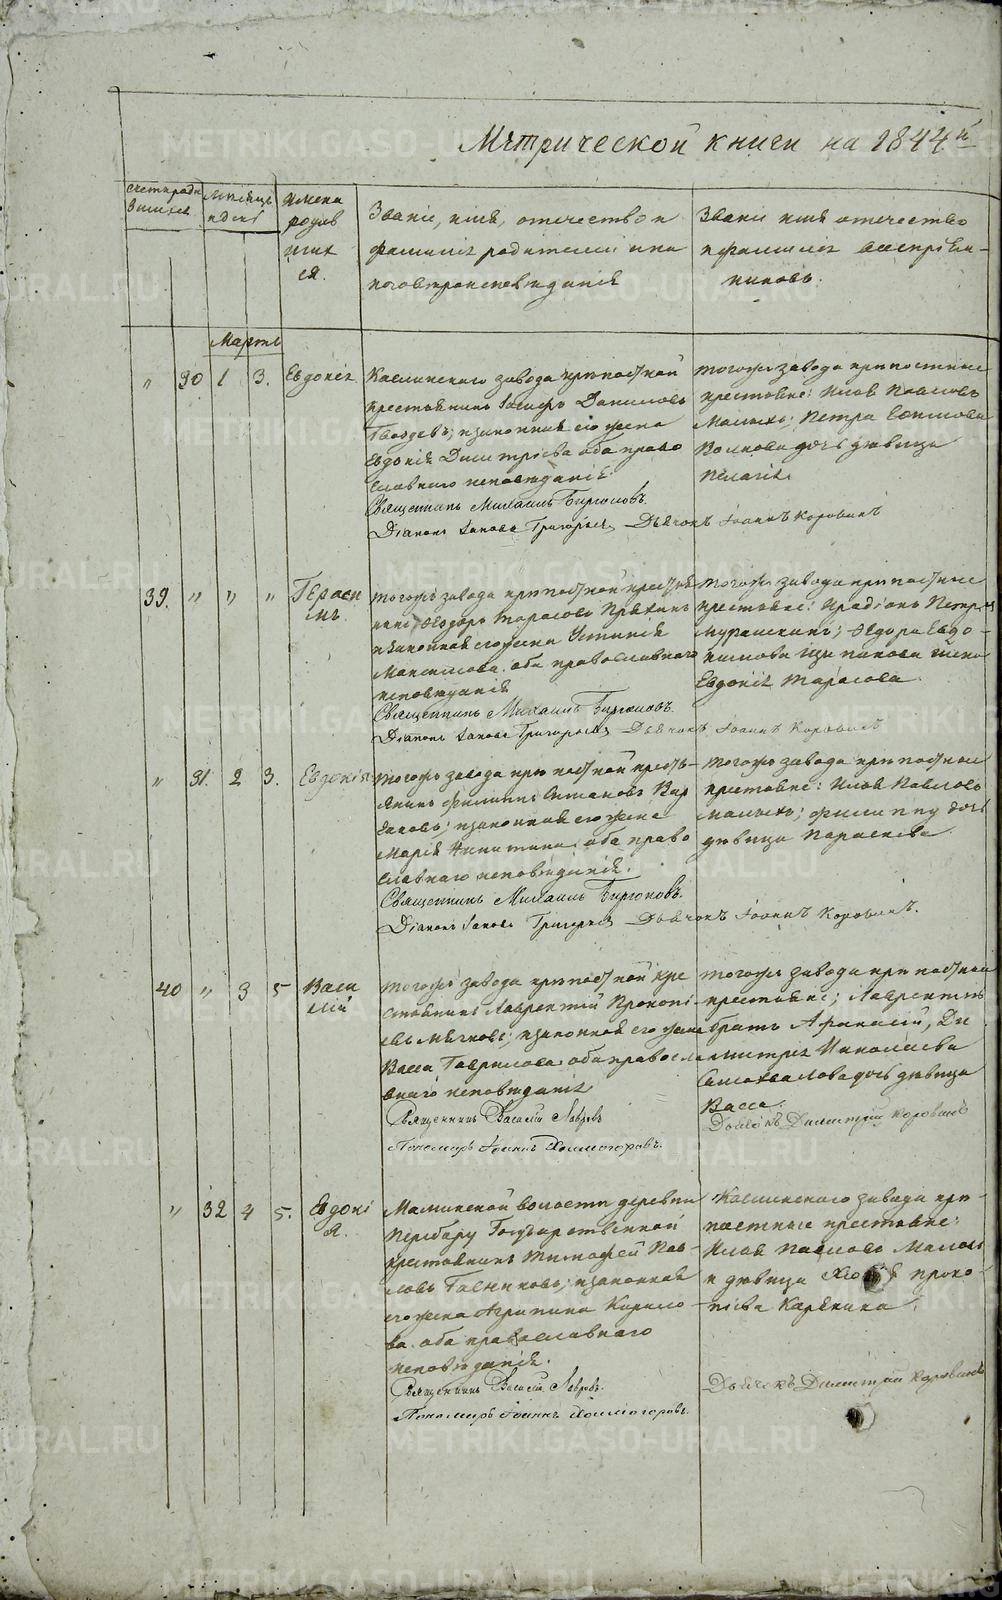 Метрической книги на 1844й
Счетъ родившихся
Месяцъ и день
Имена родившихся.
Званіе, имя, отечество и
фамилія родителей и ка
кого вероисповеданія
Званіе имя отечество
и фамилія восприем-
никовъ.
Мартъ
" 30 1 3. Евдокія
Каслинскаго завода приписной
крестьянинъ Іосифъ Даниловъ
Гвоздевъ; и законная его жена
Евдокія Димитріева оба право
славнаго исповеданія
Священникъ Михаилъ Бирюковъ.
Діаконъ Іаковъ Григорьевъ Дьячокъ Іоаннъ Коровинъ
тогожъ завода приписные
крестьяне: Илья Павловъ
Малыхъ; Петра Ефимова
Волкова дочь девица
Пелагія.
39. " " " Гераси
мъ.
тогожъ завода приписной крестья
нинъ Ѳеодоръ Тарасовъ
и законная его жена Устинія
Максимова оба православнаго
исповеданія
Священникъ Михаилъ Бирюковъ.
Діаконъ Іаковъ Григорьевъ Дьячокъ Іоаннъ Коровинъ
тогожъ завода приписные
крестьяне: Иродіонъ Петровъ
Мурашкинъ; Ѳедора Евдо-
кимова жена
Евдокія Тарасова.
" 31. 2 3. Евдокія
тогожъ завода приписной кресть-
янинъ Филиппъ Степановъ
законная его жена
Марія Никитина оба право
славнаго исповеданія.
Священникъ Михаилъ Бирюковъ.
Діаконъ Іаковъ Григорьевъ Дьячокъ Іоаннъ Коровинъ.
тогожъ завода приписные
крестьяне: Илья Павловъ
Малыхъ; дочь
девица Параскева.
40 " 3 5 Васи
лій
тогожъ завода приписной кре
стьянинъ Лаврентій Прокопь
евъ Мячковъ; и законная его жена
Васса Гаврилова оба правосла
внаго исповеданія
Священникъ Василій Лавровъ
Пономарь Іоаннъ Холмогоровъ.
тогожъ завода приписной
крестьяне; Лаврентія
братъ Афанасій, Ди
митрія Николаева
Самохвалова дочь девица
Васса.
Дьячокъ Димитрій Коровинъ
" 32 4 5. Евдокі
я.
волости деревни
Государственной
крестьянинъ Тимофей Пав
ловъ и законная
его жена Агрипина Кирило
ва оба православнаго
исповеданія.
Священникъ Василій Лавровъ.
Пономарь Іоаннъ Холмогоровъ.
Каслинскаго завода при-
писные крестьяне:
Илья Павловъ Малыхъ
и девица Проко-
піева Карякина.
Дьячекъ Димитрій Коровинъ